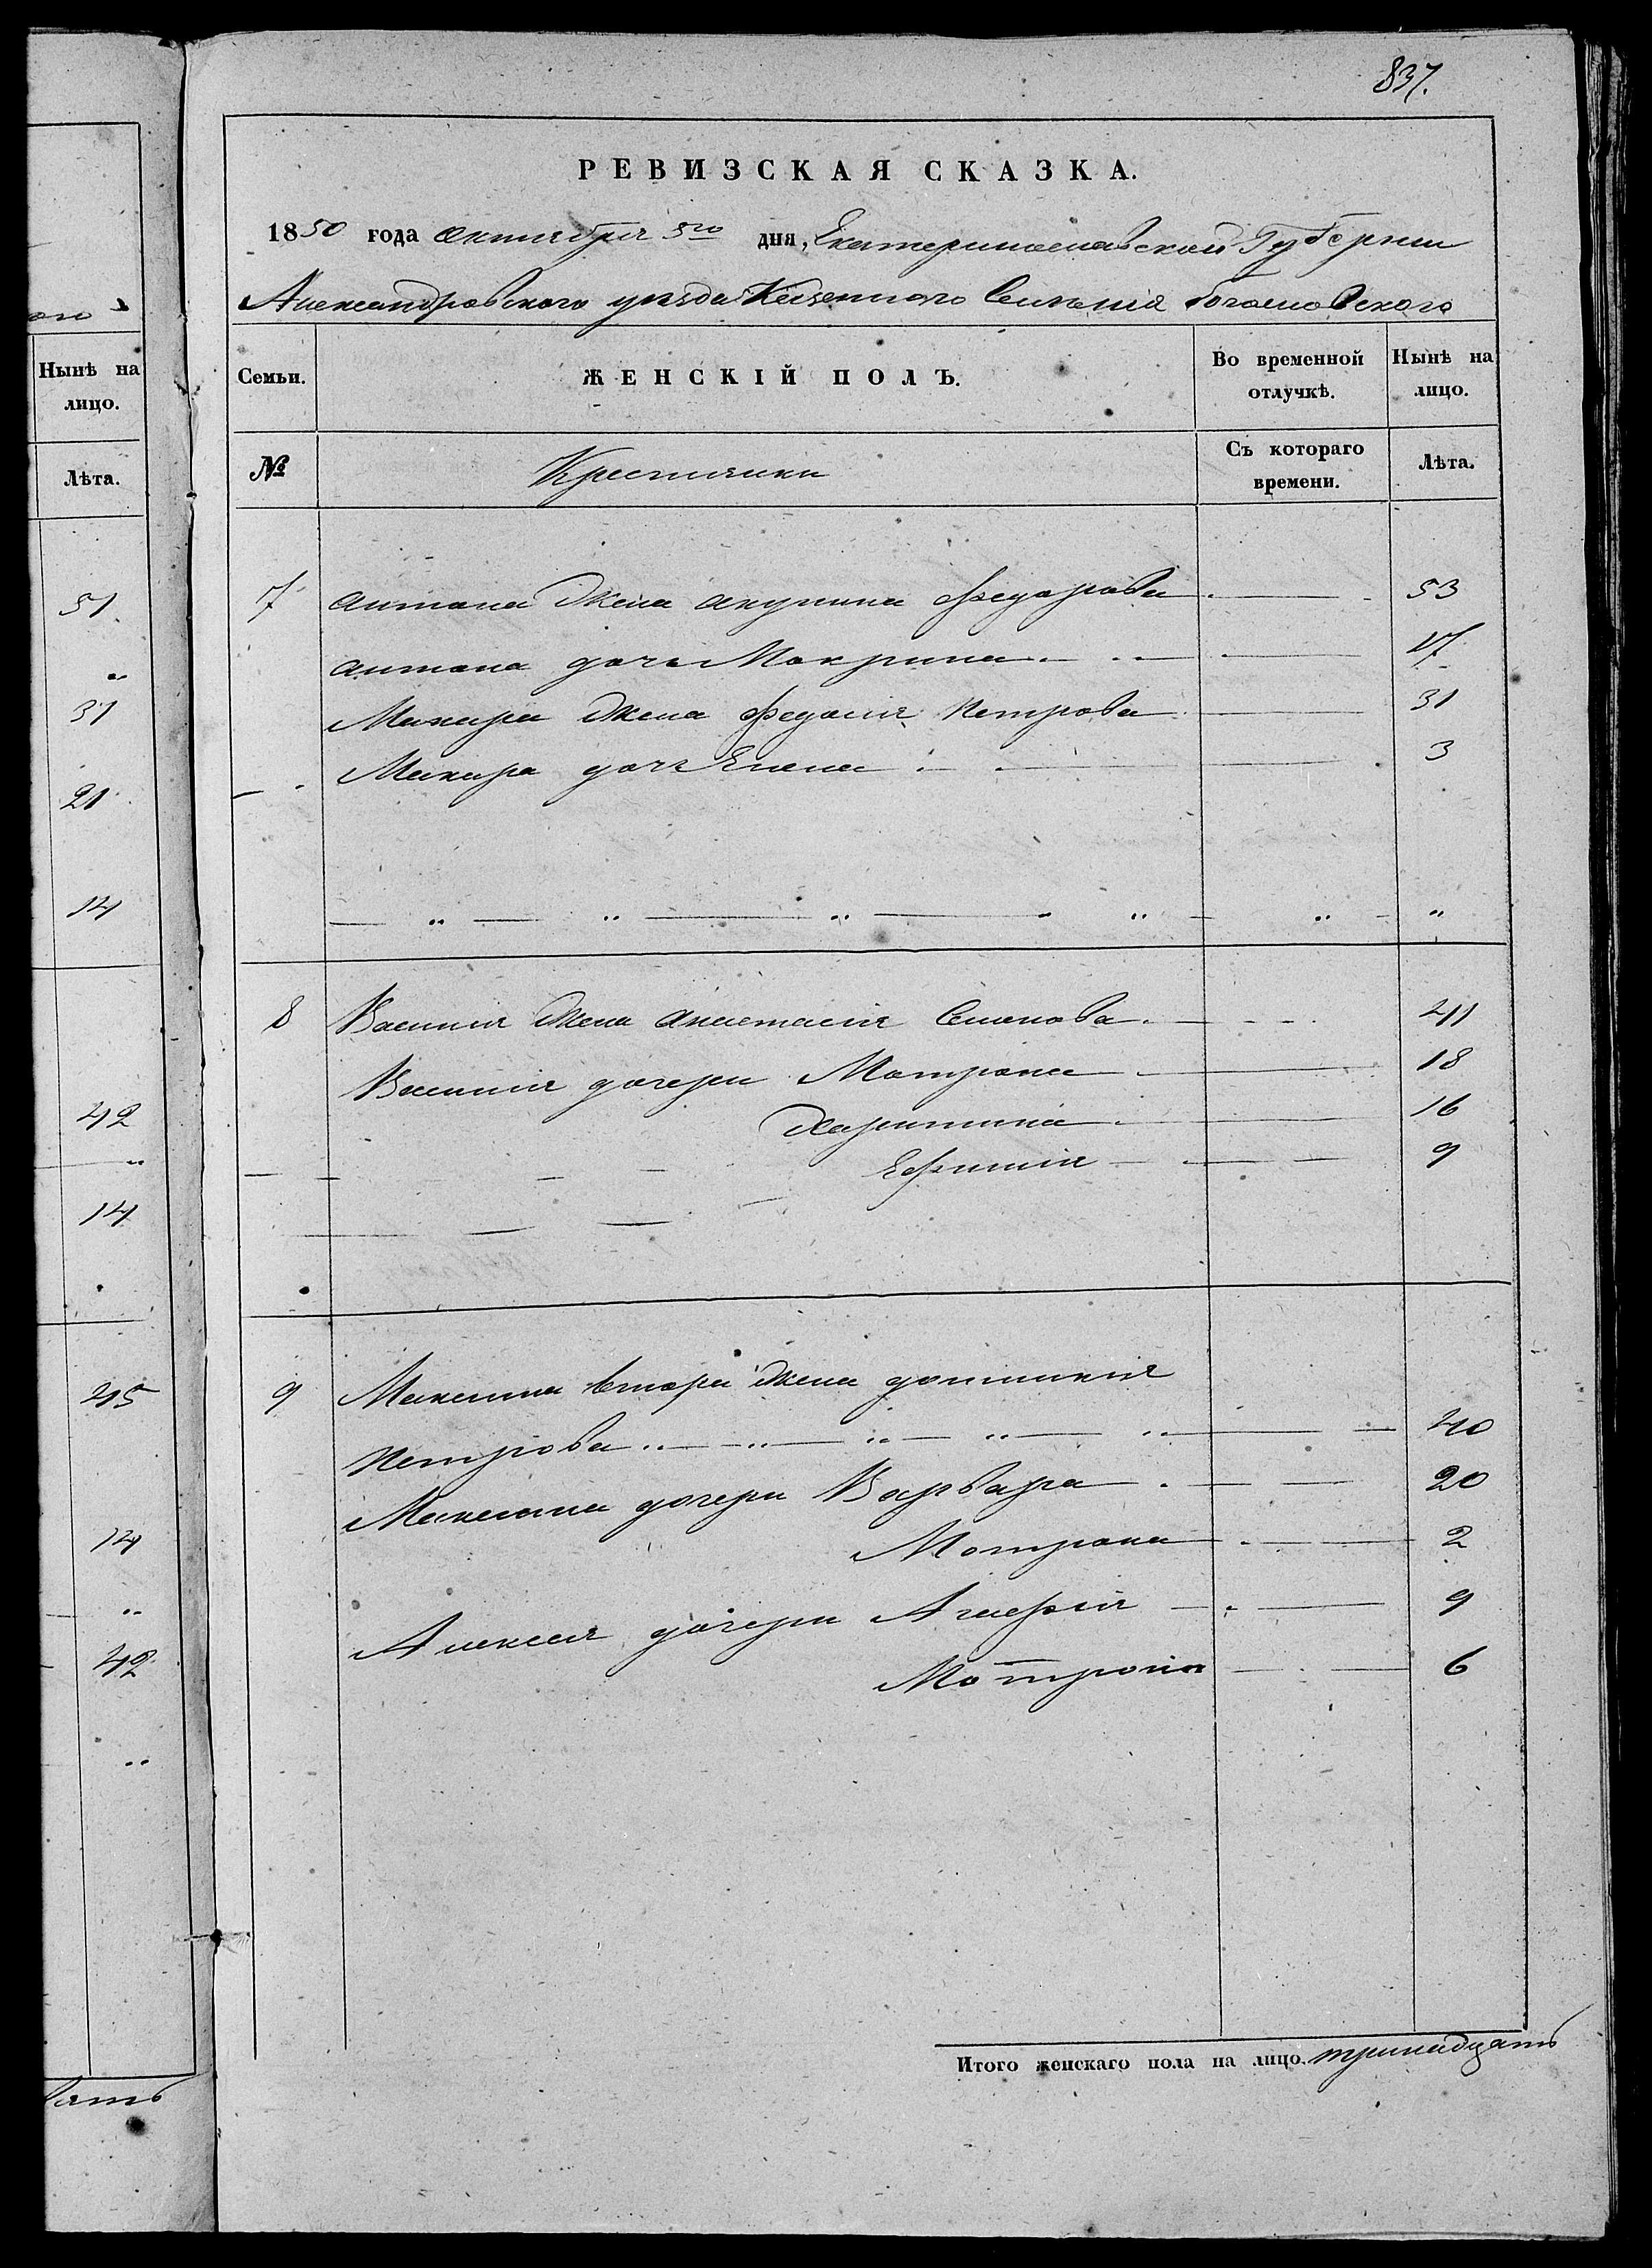 837.
РЕВИЗСКАЯ СКАЗКА.
1850 года октября 5го дня, Екатеринославской Губернии
Александровского уезда Казенного Селения Богословского
Нынѣ на
лицо.
Лѣта.
51
"
37
21
14
42
"
14
45
14
"
42
"
вять
Семьи. ЖЕНСКІЙ ПОЛЪ. Во временной отлучкѣ. Нынѣ на лицо.
№ Крестьянки Съ котораго времени. Лѣта.
7 Антона жена Акулина Федорова 53
Антона дочь Макрина 17
Макара жена Федосия Петрова 31
Макара дочь Елена 3
" " " " " "
8 Василия жена Анастасия Семенова 41
Василия дочери Матрона 18
Харитина 16
Ефимия 9
9 Максима втора жена Домникия
Петрова " " " " " 40
Максима дочери Варвара 20
Мотрона 2
Алексея дочери Агафия 9
Мотрона 6
Итого женскаго пола на лицо. тринадцать